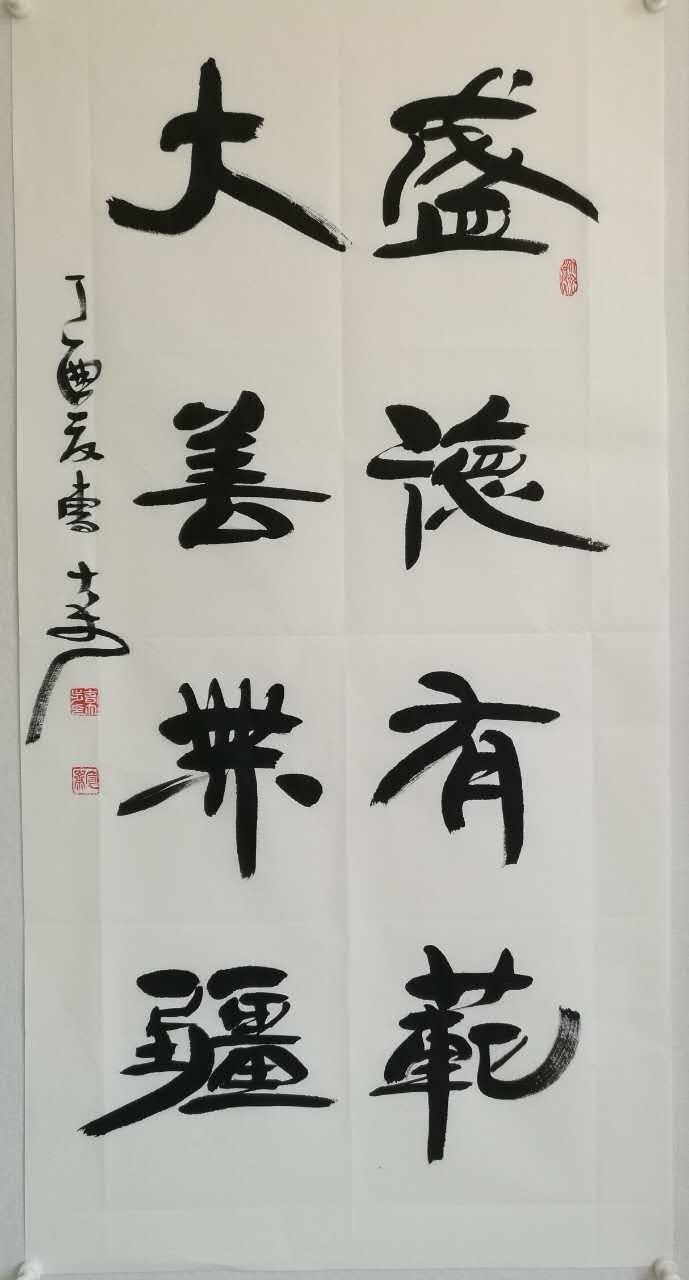 盛德有範
大善無疆
丁酉夏曹